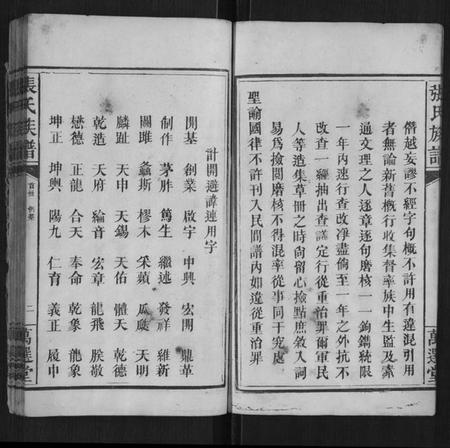 張氏族譜
萬選堂
僭越妄謬不經字句概不許用有違混引用
者無論新舊概行收集督率族中生監及素
通文理之人逐章逐句磨核一一鈎鐫統限
一年内速行查改凈盡倘至一年之外抗不
改查一經抽出查議定行從重治罪爾軍民
人等造集草冊之時尚留心撿點庶敘入詞
易爲撿閱磨核不得混率從事同干究處
聖諭國律不許刊入民間譜内如違從重治罪
計開避諱連用字
開基 創業 啟宇 中興 宏開 鼎革
制作 茅胙 篤生 繼述 發祥 維新
關雎 螽斯 樛木 采蘋 瓜瓞 天明
麟趾 天申 天錫 天佑 體天 乾德
乾造 天府 綸音 宏章 龍飛 朕敬
懋德 正龍 合天 奉命 乾象 龍象
坤正 坤輿 陽九 仁育 義正 履中
張氏族譜
首卷 例
二
萬選堂